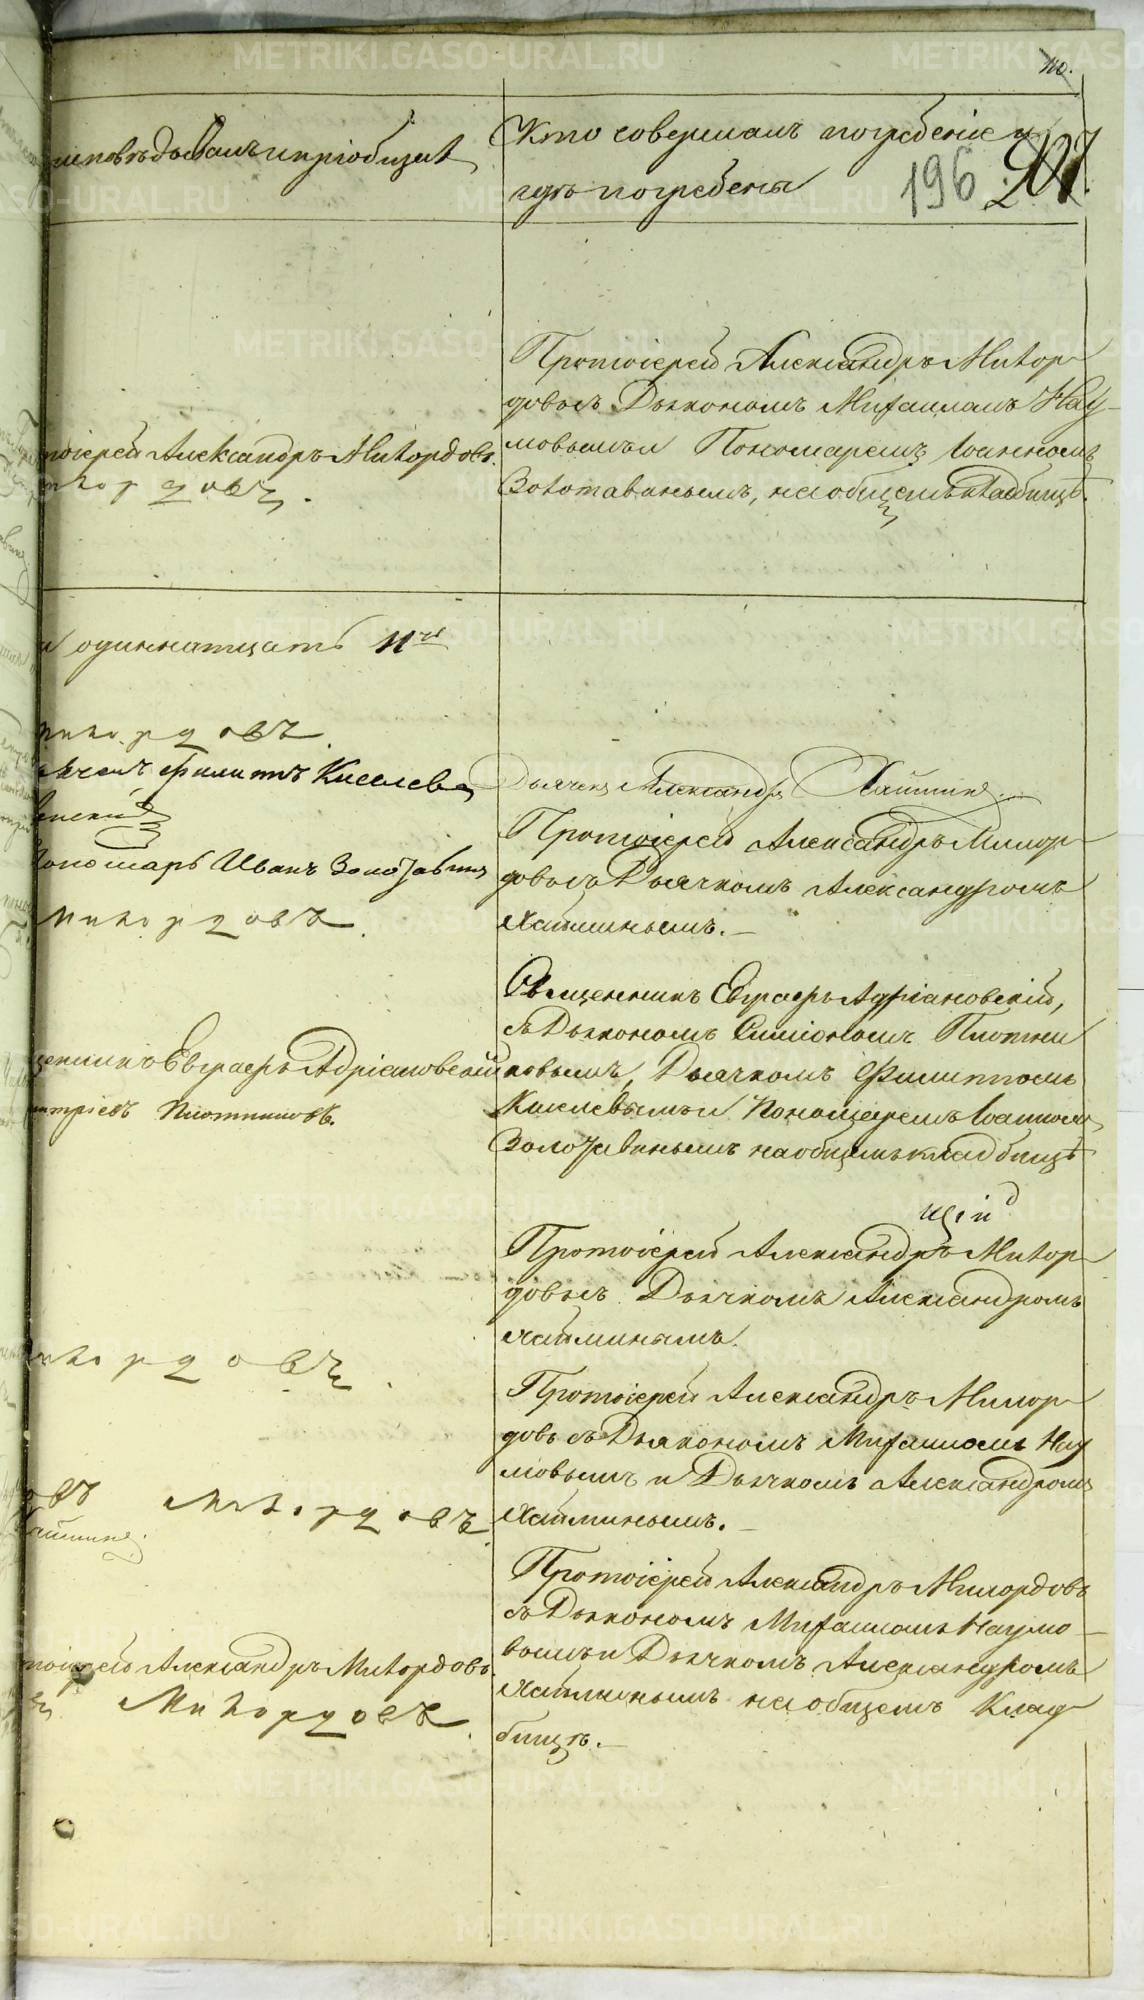 110.
исповѣдывалъ и пріобщалъ
Кто совершалъ погребеніе и
гдѣ погребены
196
207.
Протоіерей Александръ Милор-
довъ съ Дьякономъ Михаиломъ Нау-
мовымъ и Пономаремъ Іоанномъ
Золотавинымъ, на общемъ кладбищѣ.
тоіерей Александръ Милордовъ.
илордовъ.
и одиннатцать 11
милордовъ.
ячекъ Филиппъ Киселевъ
Дьячекъ Александръ Хайминъ.
Пономарь Иванъ Золотавинъ
Милордовъ.
Протоіерей Александръ Милор-
довъ съ Дьячкомъ Александромъ
Хайминымъ.—
Священникъ Евграфъ Адріановскій,
съ Дьякономъ Симіономъ Плотни
ковымъ, Дьячкомъ Филиппомъ
Киселевымъ и Пономаремъ Іоанномъ
Золотавинымъ на общемъ кладбищѣ
щенникъ Евграфъ Адріановскій
митріевъ Плотниковъ.
щій
Протоіерей Александръ Милор-
довъ съ Дьячкомъ Александромъ
Хайминымъ.
илордовъ.
Протоіерей Александръ Милор-
довъ съ Дьякономъ Михаиломъ Нау
мовымъ и Дьячкомъ Александромъ
Хайминымъ.—
овъ Милордовъ.
Хайминъ.
Протоіерей Александръ Милордовъ
съ Дьякономъ Михаиломъ Наумо-
вымъ и Дьячкомъ Александромъ
Хайминымъ на общемъ Клад-
бищѣ.—
тоіерей Александръ Милордовъ.
Милордовъ.
METRIKI.GASO-URAL.RU